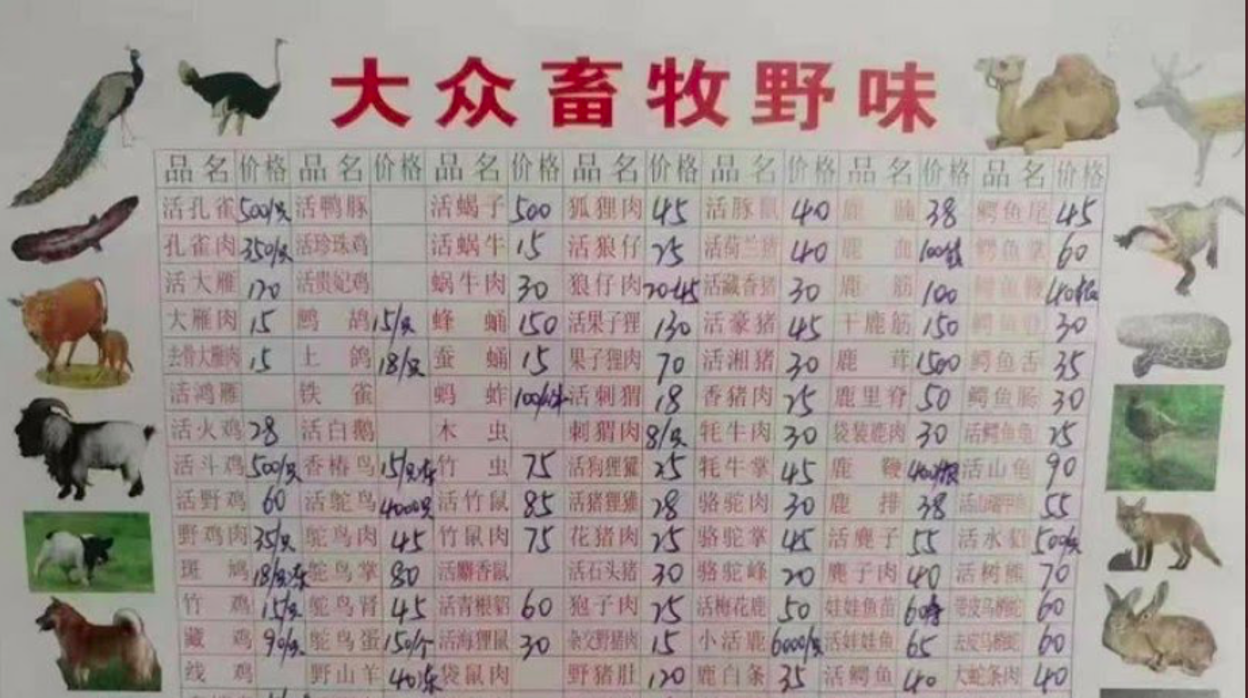 大众畜牧野味
品名 价格 品名 价格 品名 价格 品名 价格 品名 价格 品名 价格 品名 价格
活孔雀 500/只 活鸭豚 活蝎子 500 狐狸肉 45 活豚鼠 40 鹿 38 鳄鱼尾 45
孔雀肉 350/只 活珍珠鸡 活蜗牛 15 活狼仔 25 活荷兰猪 40 鹿血 鳄鱼掌 60
活大雁 120 活贵妃鸡 蜗牛肉 30 狼仔肉 20-45 活藏香猪 30 鹿筋 100 鳄鱼
大雁肉 15 鹧鸪 15/只 蜂蛹 150 活果子狸 130 活豪猪 45 干鹿筋 150 鳄鱼 30
去骨大雁肉 15 土鸽 18/只 蚕蛹 15 果子狸肉 70 活湘猪 30 鹿茸 1500 鳄鱼舌 35
活鸿雁 铁雀 蚂蚱 活刺猬 18 香猪肉 25 鹿里脊 50 鳄鱼肠 30
活火鸡 28 活白鹅 木虫 刺猬肉 8/只 牦牛肉 30 袋装鹿肉 30 活鳄鱼龟 25
活斗鸡 500/只 香椿鸟 15/只冻 竹虫 75 活狗狸獾 25 牦牛掌 45 鹿鞭 活山龟 90
活野鸡 60 活鸵鸟 4000只 活竹鼠 85 活猪狸獾 28 骆驼肉 30 鹿排 38 55
野鸡肉 35/只 鸵鸟肉 45 竹鼠肉 75 花猪肉 25 骆驼掌 45 活麂子 55 活水貂 500/只
斑鸠 18/只冻 鸵鸟掌 80 活麝香鼠 活石头猪 30 骆驼峰 20 麂子肉 40 活树熊 70
竹鸡 15/只 鸵鸟肾 45 活青根貂 60 狍子肉 25 活梅花鹿 50 娃娃鱼苗 带皮马榔蛇 60
藏鸡 90/只 鸵鸟蛋 150/个 活海狸鼠 30 杂交野猪肉 15 小活鹿 6000/只 活娃娃鱼 65 去皮马榔蛇 60
线鸡 野山羊 40冻 袋鼠肉 野猪肚 120 鹿白条 35 活鳄鱼 40 大蛇条肉 40